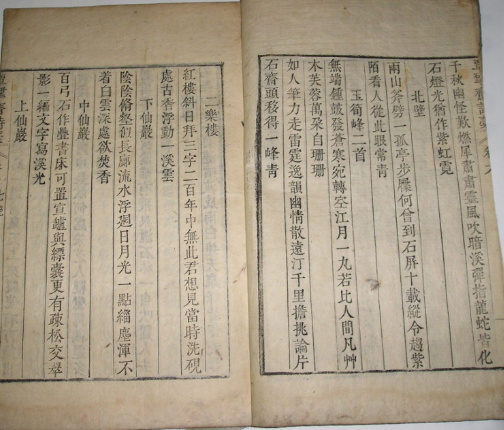 千秋幽怪歎燃犀肅肅靈風吹暗溪彈指龍蛇皆化
石燈光猶作紫虹霓
北壁
兩山斧劈一孤亭步屧何曾到石屏十載縱令趨紫
陌看人從此眼常青
玉筍峰二首
無端鐘鼓發蒼寒宛轉空江月一丸若比人間凡艸
木芙蓉初日自珊珊
如人筆力走雷霆逸韻幽情散遠汀千里擔挑論片
石齋頭移得一峰青
二樂樓
紅樓斜日拜三字二百年中無此君想見當時洗硯
處古香浮動一溪雲
下仙巖
陰陰脩壑假長廊流水浮週日月光一點緇塵渾不
着白雲深處欲焚香
中仙巖
百弓石作疊書床可置宣罏與縹囊更有疎松交翠
影一穗文字寫溪光
上仙巖